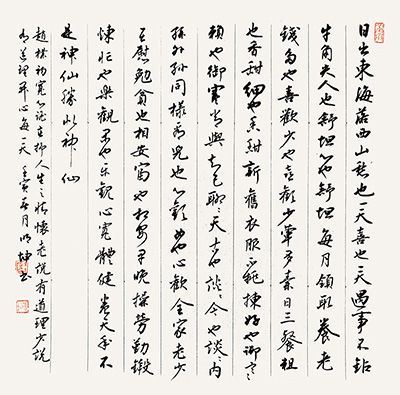 日出東海落西山愁也一天喜也一天遇事不鑽
牛角尖人也舒坦心也舒坦每月領取養老
錢多也喜歡少也喜歡少葷多素日三餐粗
也香甜細也香甜新舊衣服不挑揀好也御寒
賴也御寒常與知己聊々天古也談々今也談々内
孫外孫同樣看兒也心歡女也心歡全家老少
互慰勉貧也相安富也相安早晚操勞勤鍛
煉忙也樂觀閑也樂觀心寬體健養天年不
是神仙勝似神仙
趙樸初寬心謠 人生之情懷老說有道理少說
開心每一天壬寅 月 坤書